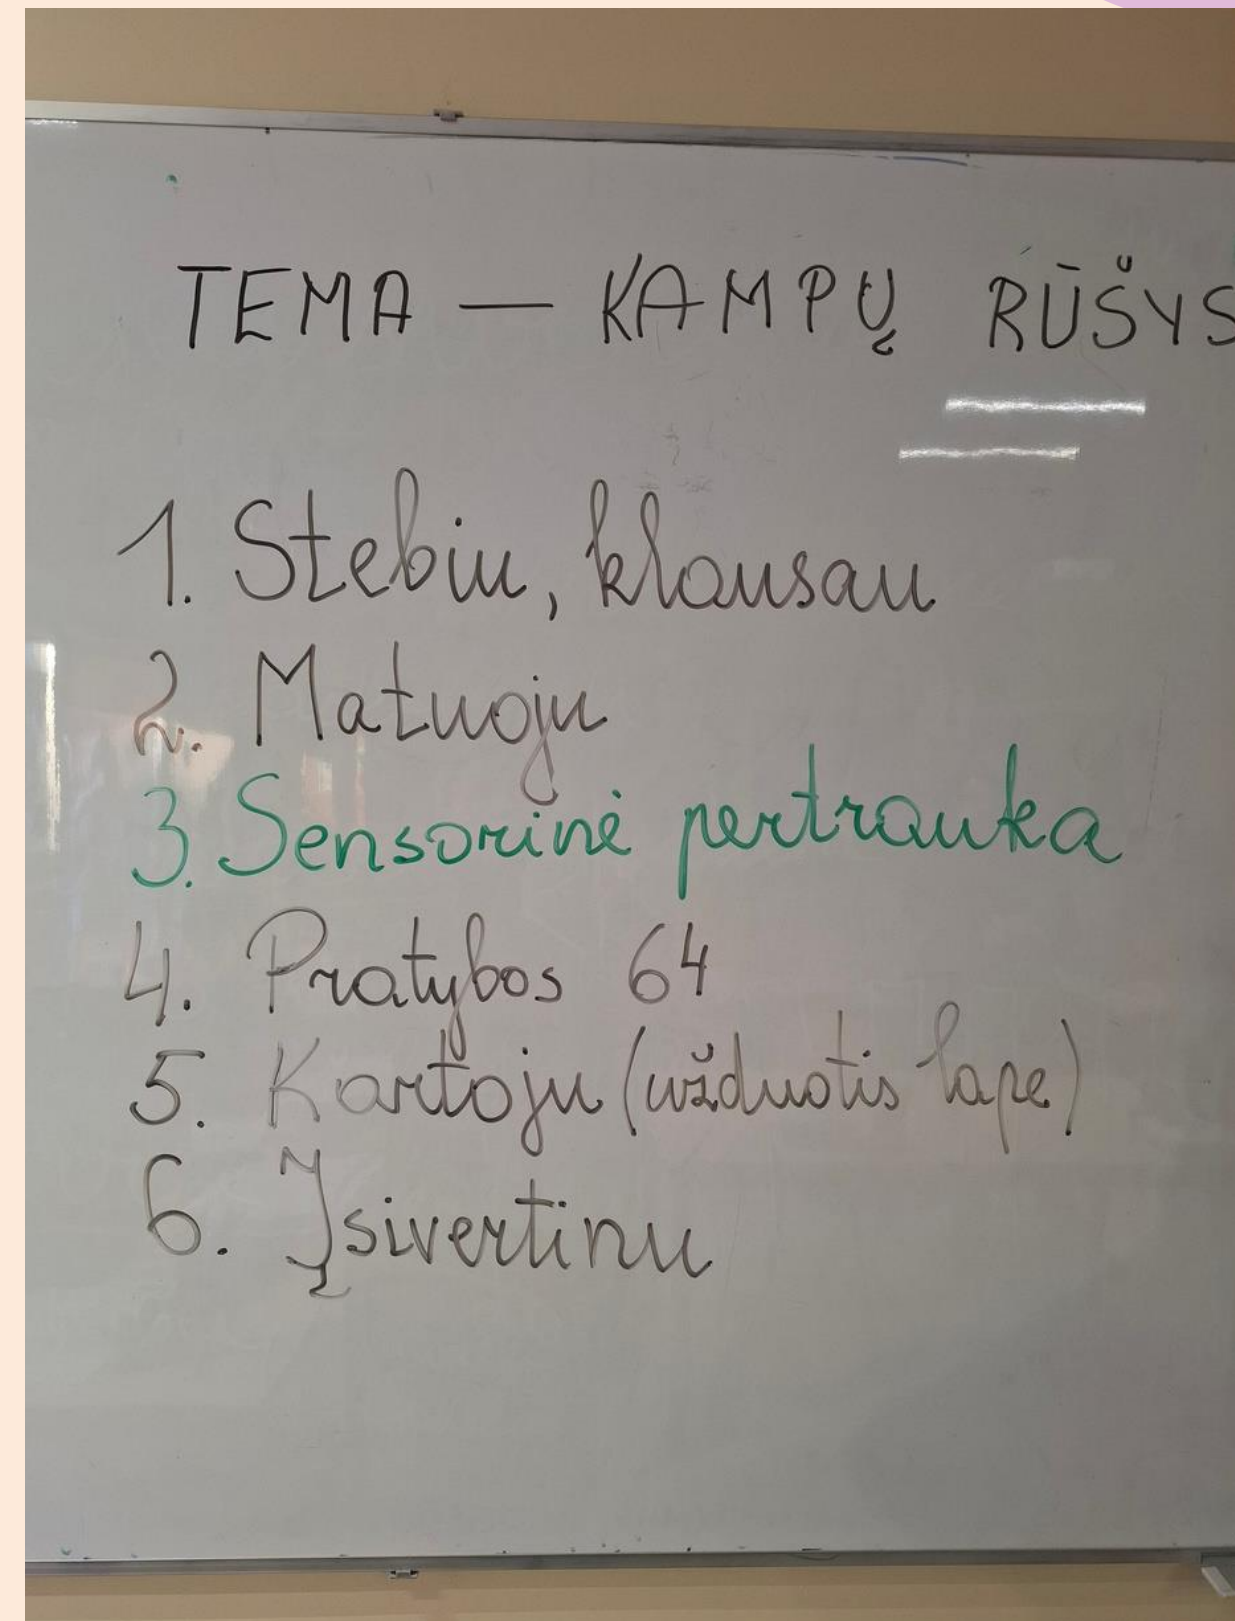 TEMA — KAMPŲ RŪŠYS
1. Stebiu, klausau
2. Matuoju
3. Sensorinė pertrauka
4. Pratybos 64
5. Kartoju (užduotis lape)
6. Įsivertinu